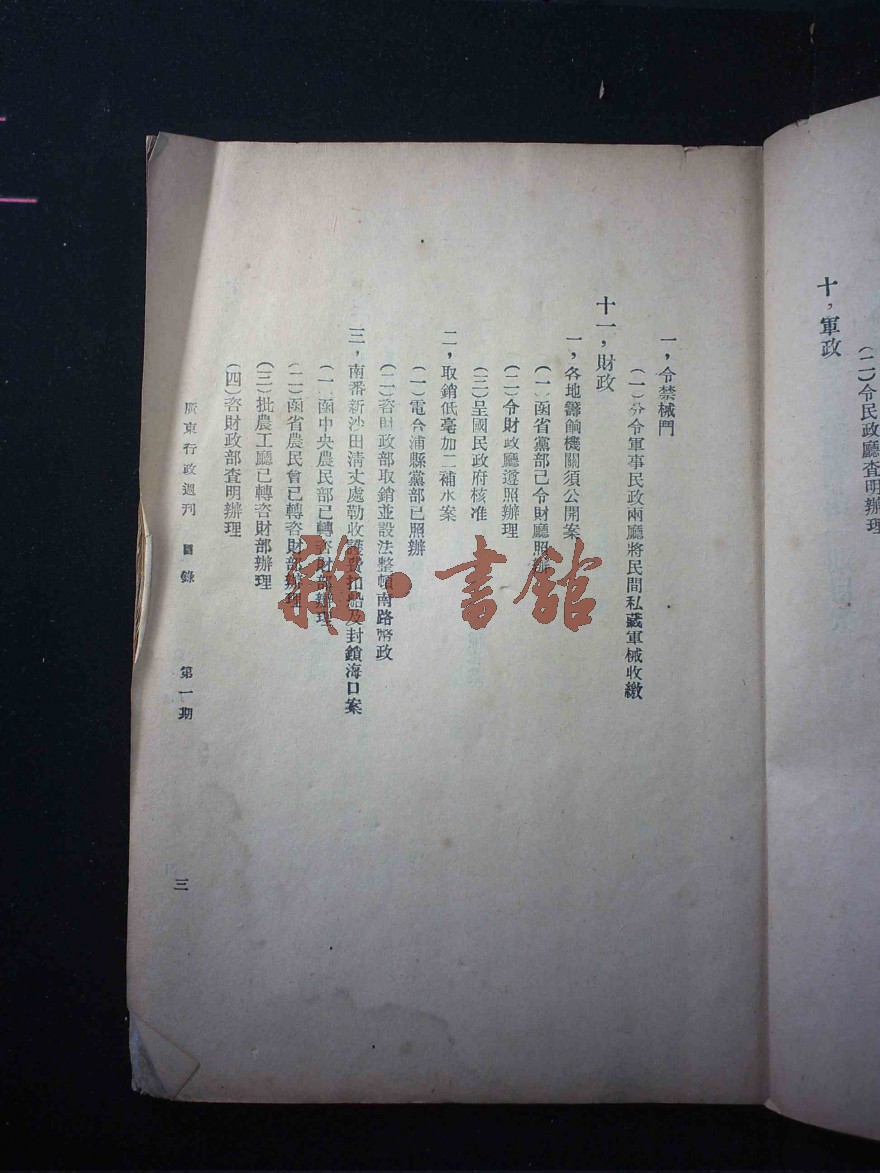 (二)令民政廳查明辦理
十，軍政
一，令禁械鬥
(一)分令軍事民政兩廳將民間私藏軍械收繳
十一，財政
一，各地籌餉機關須公開案
(一)函省黨部已令財廳照辦
(二)令財政廳遵照辦理
(三)呈國民政府核准
二，取銷低毫加二補水案
(一)電合浦縣黨部已照辦
(二)咨財政部取銷並設法整頓南路幣政
三，南番新沙田清丈處勒收護費扣船及封鎖海口案
(一)函中央農民部已轉咨財部辦理
(二)函省農民會已轉咨財部辦理
(三)批農工廳已轉咨財部辦理
(四)咨財政部查明辦理
廣東行政週刊 目錄 第一期 三
雜·書館